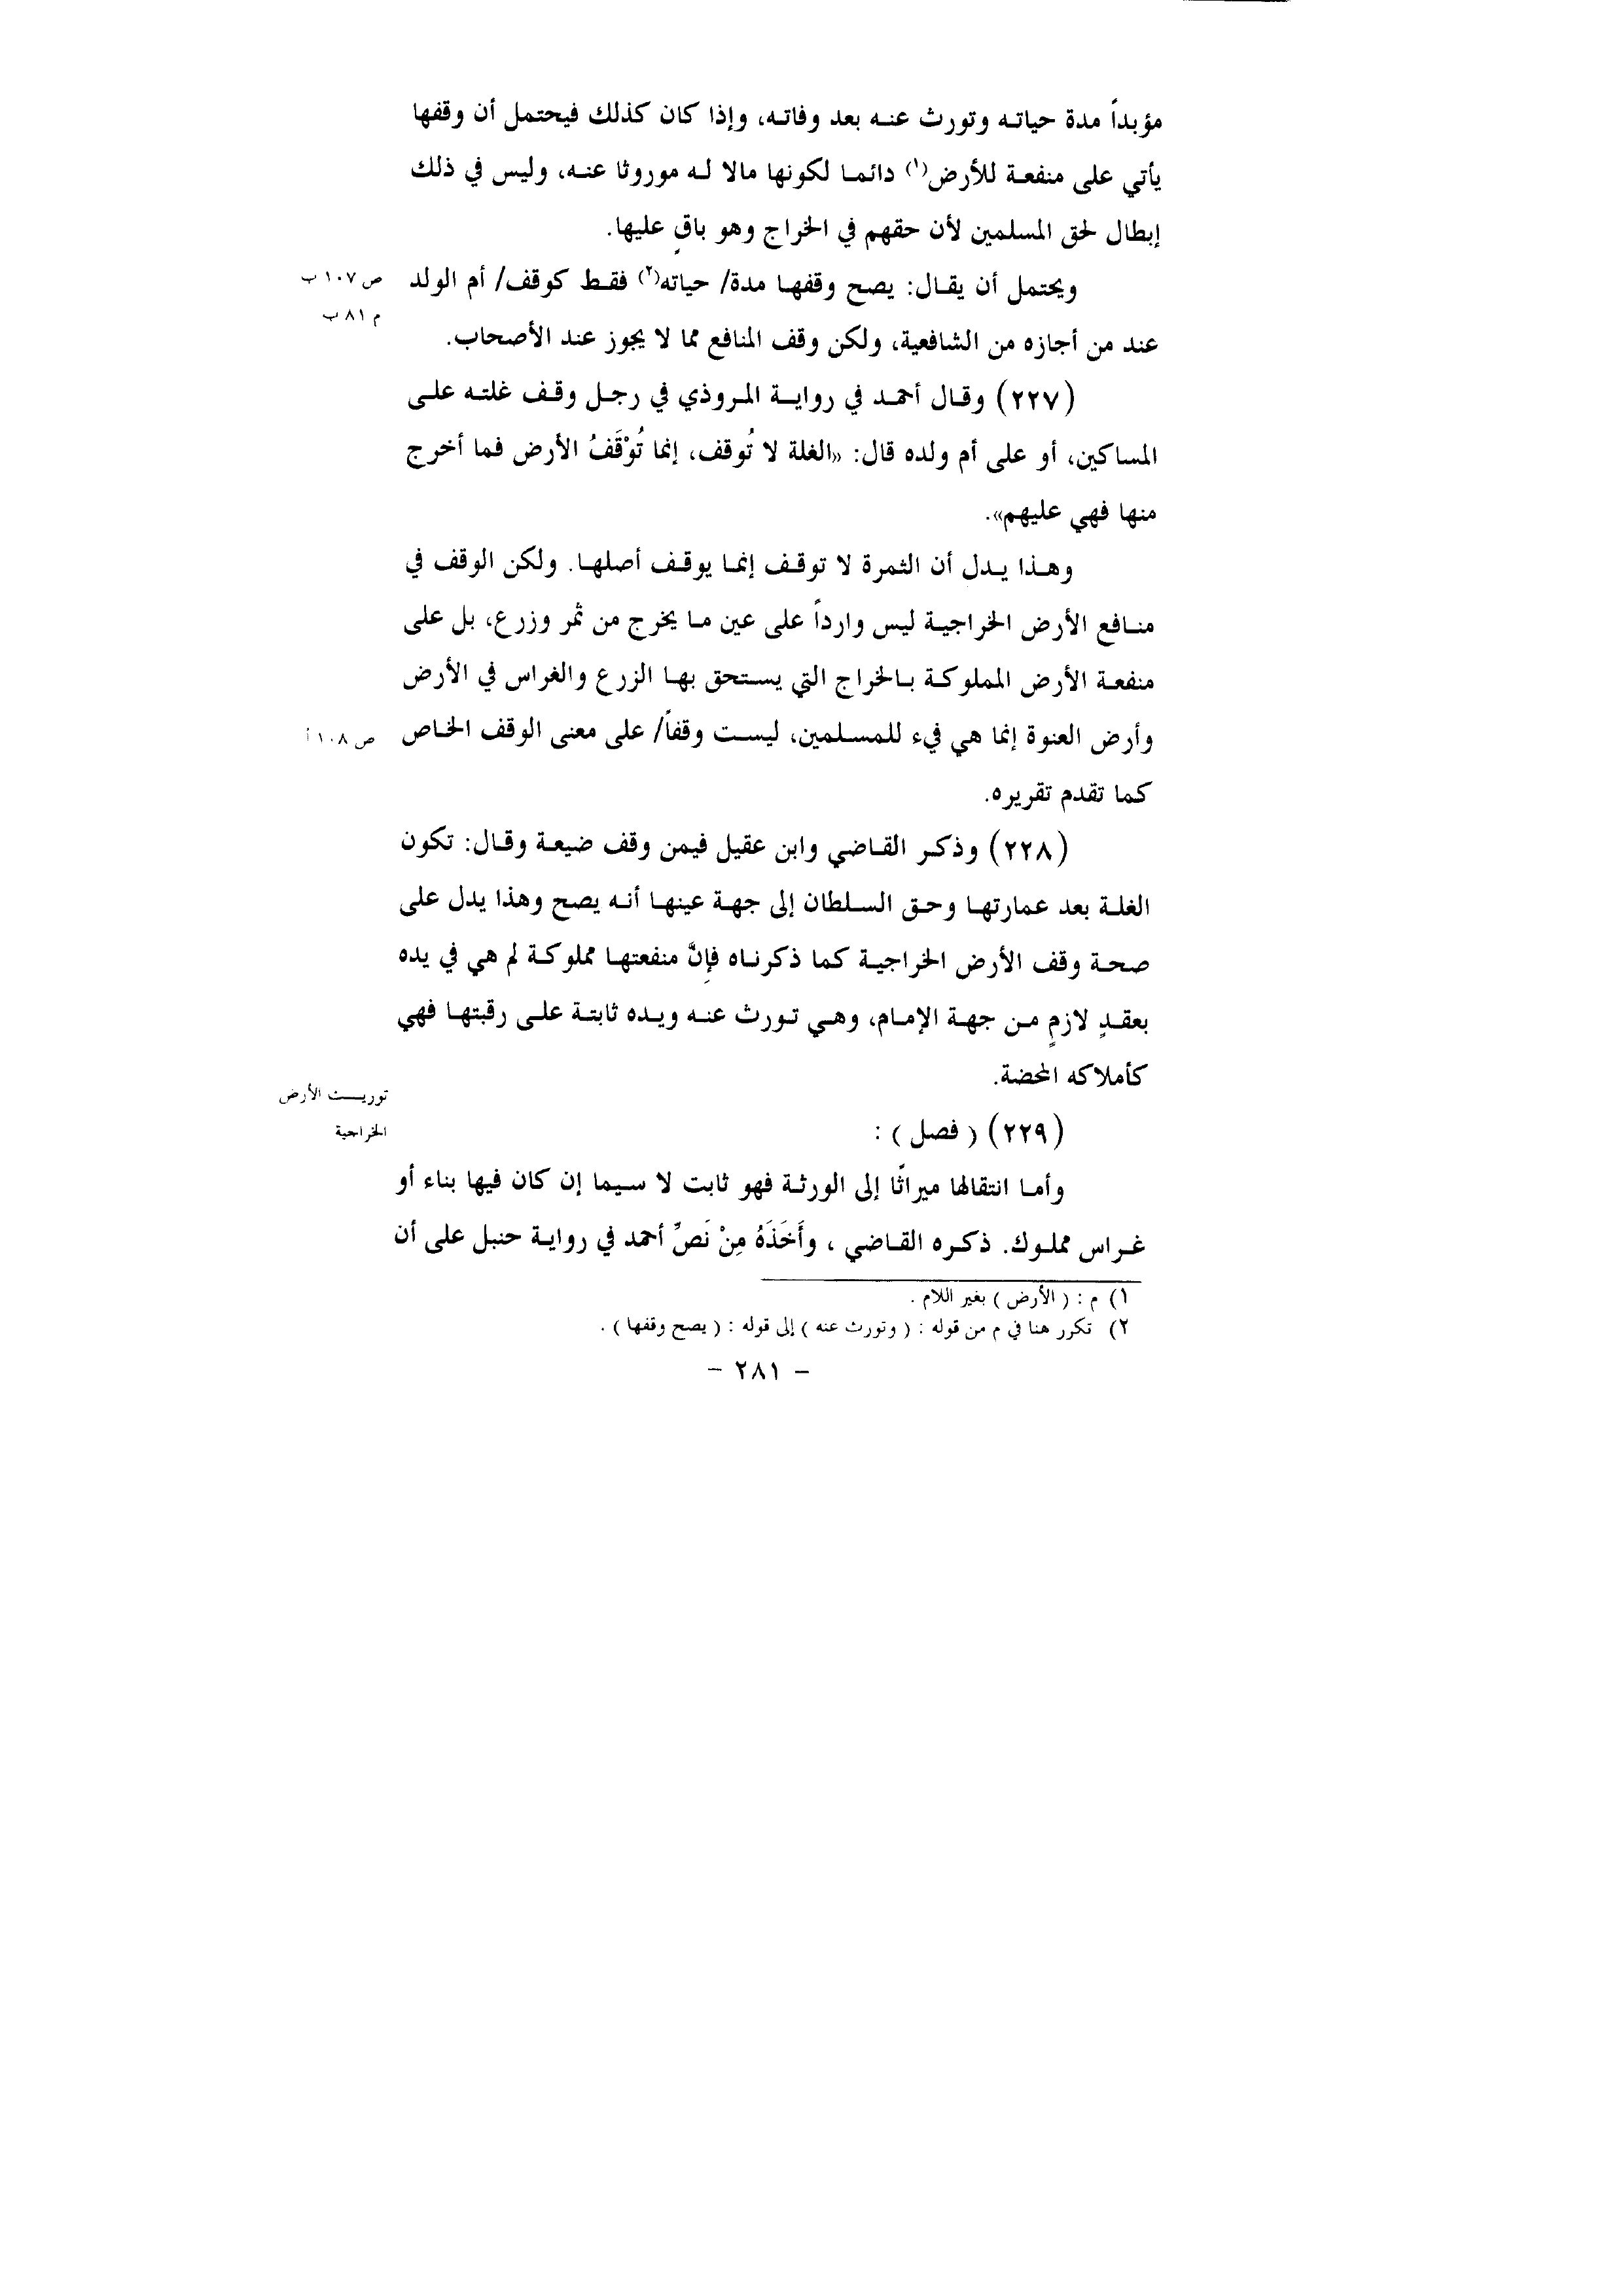 مؤبداً مدة حياته وتورث عنه بعد وفاته، وإذا كان كذلك فيحتمل أن وقفها
يأتي على منفعة للأرض(١) دائما لكونها مالا له موروثا عنه، وليس في ذلك
إبطال لحق المسلمين لأن حقهم في الخراج وهو باقٍ عليها.
ويحتمل أن يقال: يصح وقفها مدة/ حياته(٢) فقط كوقف/ أم الولد
ص ١٠٧ ب
م ٨١ ب
عند من أجازه من الشافعية، ولكن وقف المنافع مما لا يجوز عند الأصحاب.
(٢٢٧) وقال أحمد في رواية المروذي في رجل وقف غلته على
المساكين، أو على أم ولده قال: «الغلة لا تُوقف، إنما تُوْقَفُ الأرض فما أخرج
منها فهي عليهم».
وهذا يدل أن الثمرة لا توقف إنما يوقف أصلها. ولكن الوقف في
منافع الأرض الخراجية ليس وارداً على عين ما يخرج من ثمر وزرع، بل على
منفعة الأرض المملوكة بالخراج التي يستحق بها الزرع والغراس في الأرض
وأرض العنوة إنما هي فيء للمسلمين، ليست وقفاً/ على معنى الوقف الخاص
ص ١٠٨ أ
كما تقدم تقريره.
(٢٢٨) وذكر القاضي وابن عقيل فيمن وقف ضيعة وقال: تكون
الغلة بعد عمارتها وحق السلطان إلى جهة عينها أنه يصح وهذا يدل على
صحة وقف الأرض الخراجية كما ذكرناه فإنَّ منفعتها مملوكة لم هي في يده
بعقدٍ لازمٍ من جهة الإمام، وهي تورث عنه ويده ثابتة على رقبتها فهي
كأملاكه المحضة.
توريث الأرض
الخراجية
(٢٢٩) ( فصل ) :
وأما انتقالها ميراثًا إلى الورثة فهو ثابت لا سيما إن كان فيها بناء أو
غراس مملوك. ذكره القاضي ، وأَخَذَهُ مِنْ نَصِّ أحمد في رواية حنبل على أن
١) م : ( الأرض ) بغير اللام .
٢) تكرر هنا في م من قوله : ( وتورث عنه ) إلى قوله : ( يصح وقفها ) .
– ٢٨١ –